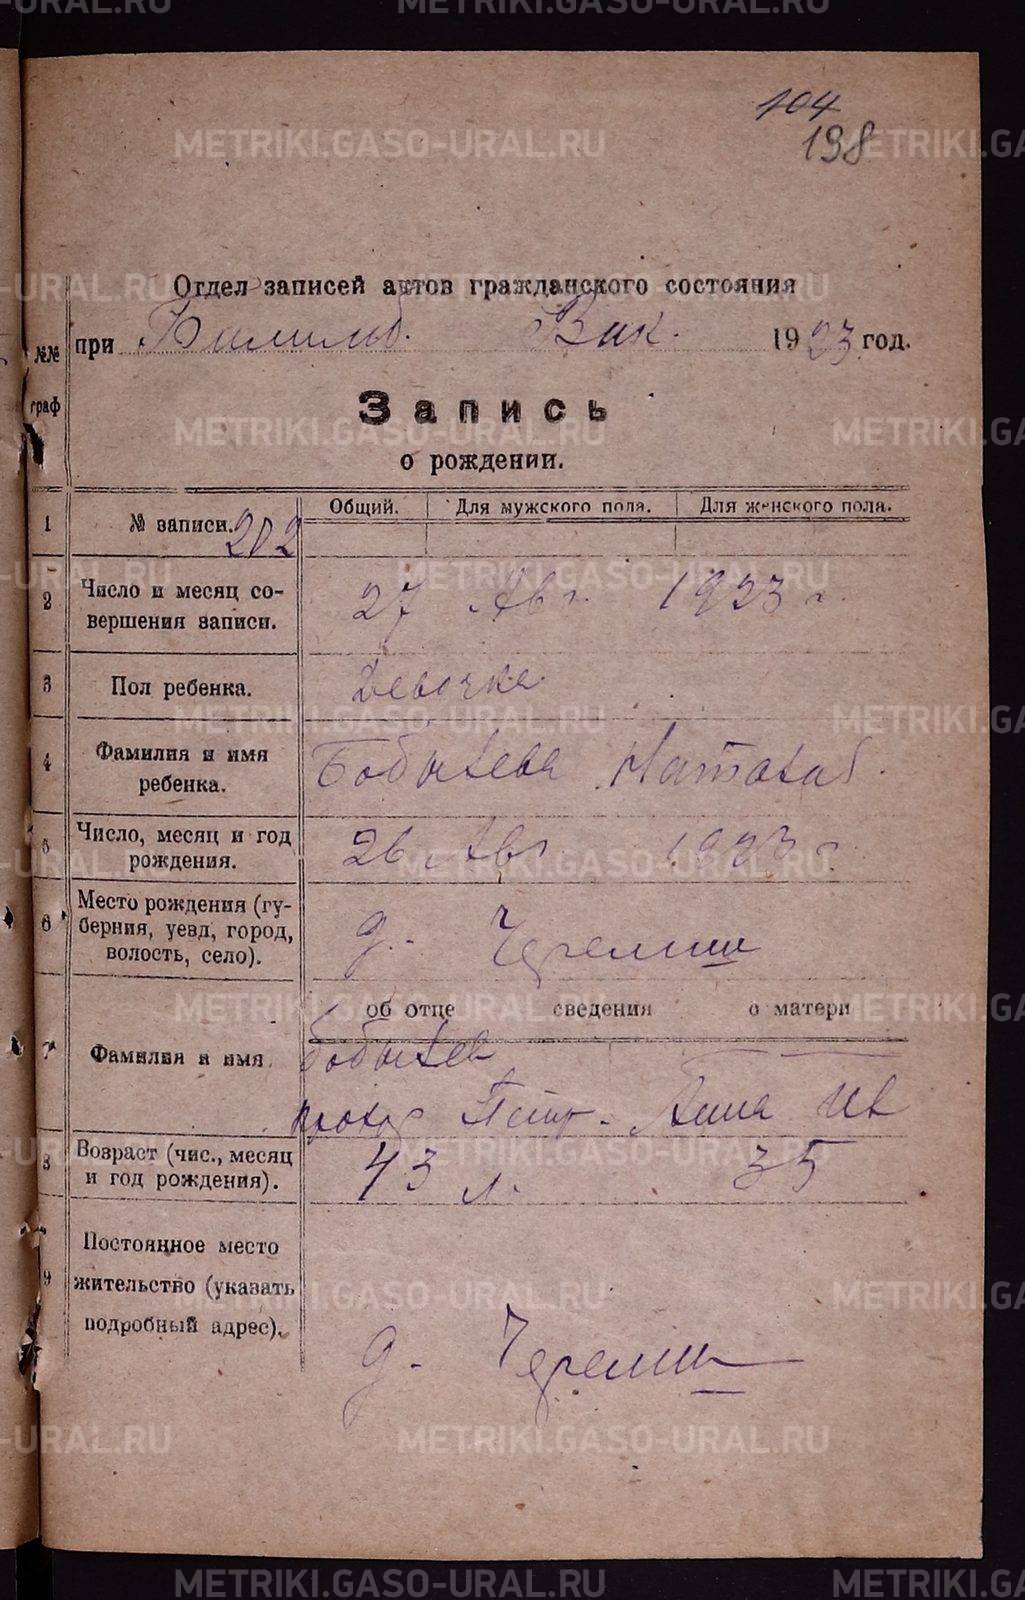 104
198
Отдел записей актов гражданского состояния
при Вик. 1923 год.
№№ граф
Запись
о рождении.
Общий. Для мужского пола. Для женского пола.
1 № записи. 202
2 Число и месяц совершения записи. 27 Авг. 1923 г.
3 Пол ребенка. Девочка
4 Фамилия и имя ребенка.
5 Число, месяц и год рождения. 26 Авг 1923 г
6 Место рождения (губерния, уезд, город, волость, село). д. Черемиш
об отце сведения о матери
7 Фамилия и имя Петр. Анна Ив
8 Возраст (чис., месяц и год рождения). 43 л. 35
9 Постоянное место жительство (указать подробный адрес). д. Черемиш
METRIKI.GASO-URAL.RU